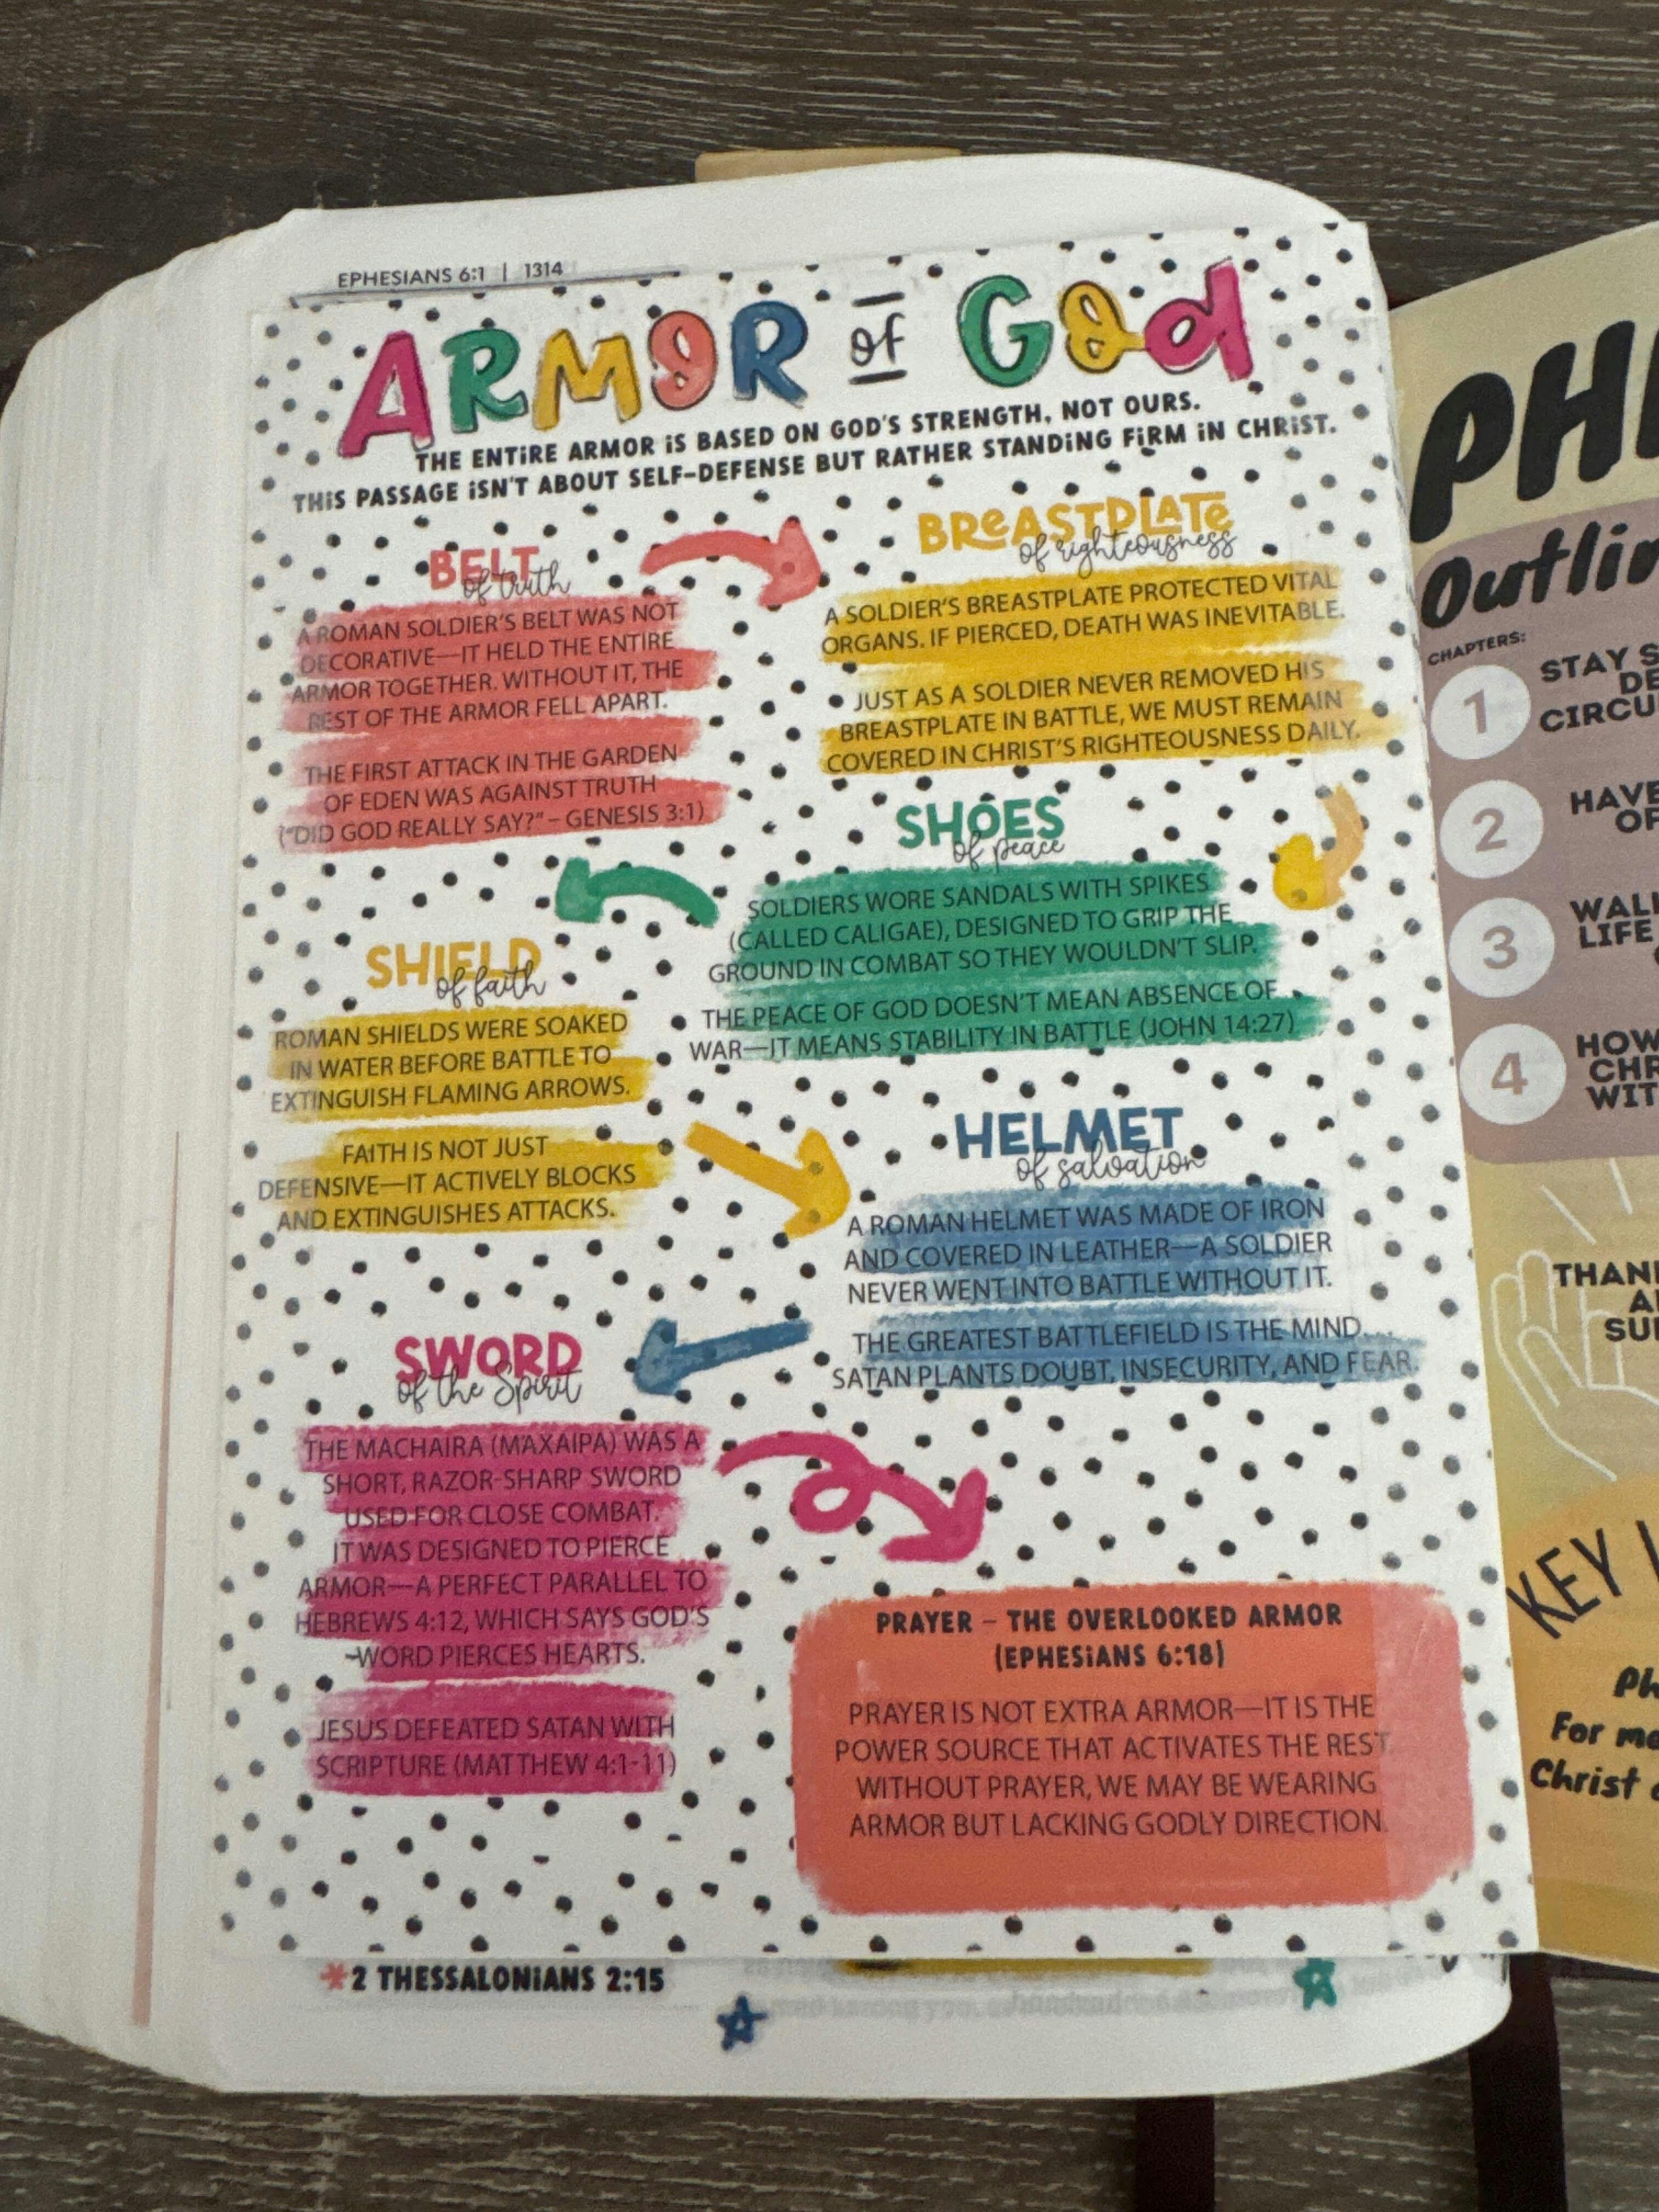 EPHESIANS 6:1 | 1314
ARMOR of God
THE ENTIRE ARMOR IS BASED ON GOD'S STRENGTH, NOT OURS.
THIS PASSAGE ISN'T ABOUT SELF-DEFENSE BUT RATHER STANDING FIRM IN CHRIST.
BELT
of truth
A ROMAN SOLDIER'S BELT WAS NOT
DECORATIVE—IT HELD THE ENTIRE
ARMOR TOGETHER. WITHOUT IT, THE
REST OF THE ARMOR FELL APART.
THE FIRST ATTACK IN THE GARDEN
OF EDEN WAS AGAINST TRUTH
("DID GOD REALLY SAY?" – GENESIS 3:1)
BREASTPLATE
of righteousness
A SOLDIER'S BREASTPLATE PROTECTED VITAL
ORGANS. IF PIERCED, DEATH WAS INEVITABLE.
JUST AS A SOLDIER NEVER REMOVED HIS
BREASTPLATE IN BATTLE, WE MUST REMAIN
COVERED IN CHRIST'S RIGHTEOUSNESS DAILY.
SHOES
of peace
SOLDIERS WORE SANDALS WITH SPIKES
(CALLED CALIGAE), DESIGNED TO GRIP THE
GROUND IN COMBAT SO THEY WOULDN'T SLIP.
THE PEACE OF GOD DOESN'T MEAN ABSENCE OF
WAR—IT MEANS STABILITY IN BATTLE (JOHN 14:27)
SHIELD
of faith
ROMAN SHIELDS WERE SOAKED
IN WATER BEFORE BATTLE TO
EXTINGUISH FLAMING ARROWS.
FAITH IS NOT JUST
DEFENSIVE—IT ACTIVELY BLOCKS
AND EXTINGUISHES ATTACKS.
HELMET
of salvation
A ROMAN HELMET WAS MADE OF IRON
AND COVERED IN LEATHER—A SOLDIER
NEVER WENT INTO BATTLE WITHOUT IT.
THE GREATEST BATTLEFIELD IS THE MIND.
SATAN PLANTS DOUBT, INSECURITY, AND FEAR.
SWORD
of the Spirit
THE MACHAIRA (ΜΆΧΑΙΡΑ) WAS A
SHORT, RAZOR-SHARP SWORD
USED FOR CLOSE COMBAT.
IT WAS DESIGNED TO PIERCE
ARMOR—A PERFECT PARALLEL TO
HEBREWS 4:12, WHICH SAYS GOD'S
WORD PIERCES HEARTS.
JESUS DEFEATED SATAN WITH
SCRIPTURE (MATTHEW 4:1-11)
PRAYER – THE OVERLOOKED ARMOR
(EPHESIANS 6:18)
PRAYER IS NOT EXTRA ARMOR—IT IS THE
POWER SOURCE THAT ACTIVATES THE REST.
WITHOUT PRAYER, WE MAY BE WEARING
ARMOR BUT LACKING GODLY DIRECTION.
*2 THESSALONIANS 2:15
CHAPTERS:
1 STAY
2 HAVE
OF
3
LIFE
4 HOW
KEY
For me
Christ